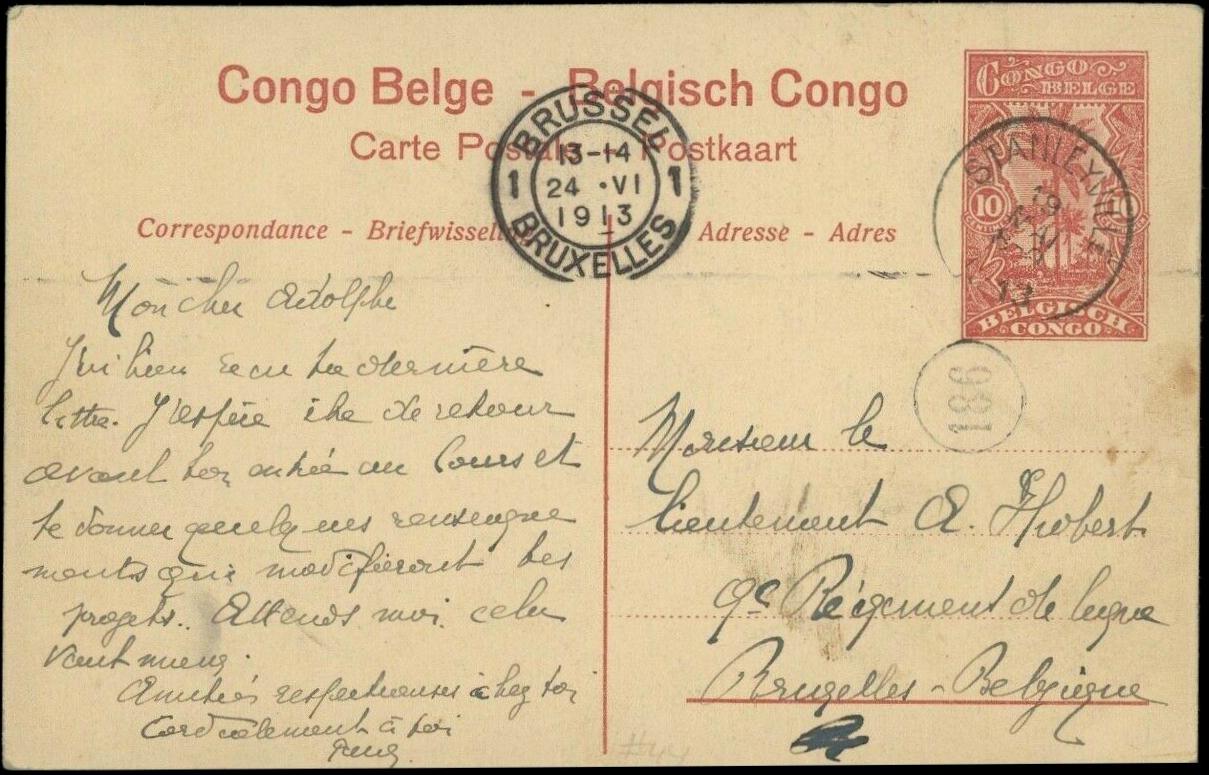 Congo Belge - Belgisch Congo
Carte Postale - Postkaart
Correspondance - Briefwisseling
Adresse - Adres
BRUSSEL
13-14
1 24 •VI 1
1913
BRUXELLES
CONGO
BELGE
10
BELGISCH
CONGO
STANLEYVILLE
19
13
186
Mon cher Adolphe
J'ai bien reçu ta dernière
lettre. J'espère être de retour
avant ton entrée au Cours et
te donner quelques renseigne
ments qui modifieront tes
projets.. Attends moi cela
vaut mieux.
Amitiés respectueuses chez toi
Cordialement à toi
Monsieur le
Lieutenant A. Hubert
9e Régiment de ligne
Bruxelles - Belgique
#44